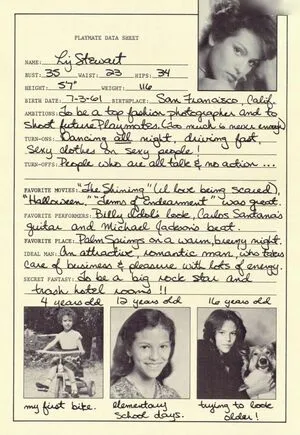 PLAYMATE DATA SHEET
NAME: Liz Stewart
BUST: 35 WAIST: 23 HIPS: 34
HEIGHT: 5'7" WEIGHT: 116
BIRTH DATE: 7-3-61 BIRTHPLACE: San Francisco, Calif.
AMBITIONS: To be a top fashion photographer and to
shoot future Playmates. (Too much is never enough)
TURN-ONS: Dancing all night, driving fast,
sexy clothes on sexy people!
TURN-OFFS: People who are all talk & no action...
FAVORITE MOVIES: "The Shining" (I love being scared)
"Halloween," "Terms of Endearment" was great.
FAVORITE PERFORMERS: Billy Idol's look, Carlos Santana's
guitar and Michael Jackson's beat.
FAVORITE PLACE: Palm Springs on a warm, breezy night.
IDEAL MAN: An attractive, romantic man, who takes
care of business & pleasure with lots of energy.
SECRET FANTASY: To be a big rock star and
trash hotel rooms!!
4 years old 12 years old 16 years old
my first bike. elementary school days. trying to look older!